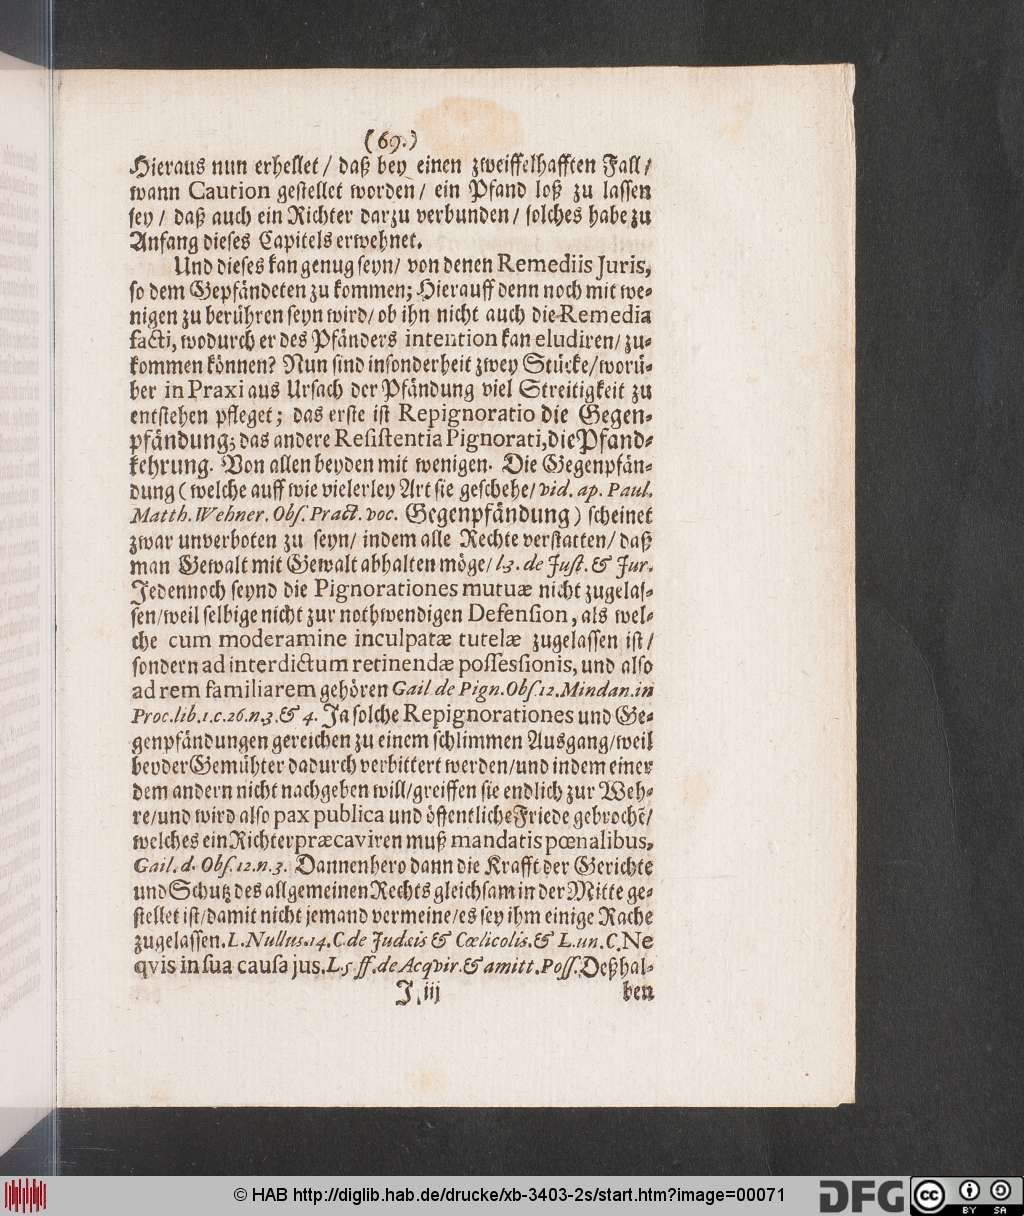 (69.)
Hieraus nun erhellet / daß bey einen zweiffelhafften Fall /
wann Caution gestellet worden / ein Pfand loß zu lassen
sey / daß auch ein Richter darzu verbunden / solches habe zu
Anfang dieses Capitels erwehnet.
Und dieses kan genug seyn / von denen Remediis Juris,
so dem Gepfändeten zu kommen; Hierauff denn noch mit we-
nigen zu berühren seyn wird / ob ihn nicht auch die Remedia
facti, wodurch er des Pfänders intention kan eludiren / zu-
kommen können? Nun sind insonderheit zwey Stücke / worü-
ber in Praxi aus Ursach der Pfändung viel Streitigkeit zu
entstehen pfleget; das erste ist Repignoratio die Gegen-
pfändung; das andere Resistentia Pignorati, die Pfand-
kehrung. Von allen beyden mit wenigen. Die Gegenpfän-
dung ( welche auff wie vielerley Art sie geschehe / vid. ap. Paul.
Matth. Wehner. Obs. Pract. voc. Gegenpfändung ) scheinet
zwar unverboten zu seyn / indem alle Rechte verstatten / daß
man Gewalt mit Gewalt abhalten möge / l. 3. de Just. & Jur.
Jedennoch seynd die Pignorationes mutuæ nicht zugelas-
sen / weil selbige nicht zur nothwendigen Defension, als wel-
che cum moderamine inculpatæ tutelæ zugelassen ist /
sondern ad interdictum retinendæ possessionis, und also
ad rem familiarem gehören Gail de Pign. Obs. 12. Mindan. in
Proc. lib. 1. c. 26. n. 3. & 4. Ja solche Repignorationes und Ge-
genpfändungen gereichen zu einem schlimmen Ausgang / weil
beyder Gemühter dadurch verbittert werden / und indem einer
dem andern nicht nachgeben will / greiffen sie endlich zur Weh-
re / und wird also pax publica und öffentliche Friede gebrochẽ /
welches ein Richter præcaviren muß mandatis pœnalibus,
Gail. d. Obs. 12. n. 3. Dannenhero dann die Krafft der Gerichte
und Schutz des allgemeinen Rechts gleichsam in der Mitte ge-
stellet ist / damit nicht jemand vermeine / es sey ihm einige Rache
zugelassen. L. Nullus. 14. C. de Judæis & Cœlicolis. & L. un. C. Ne
qvis in sua causa jus. L. 5. ff. de Acqvir. & amitt. Poss. Deßhal-
J iij ben
© HAB http://diglib.hab.de/drucke/xb-3403-2s/start.htm?image=00071
DFG cc BY SA